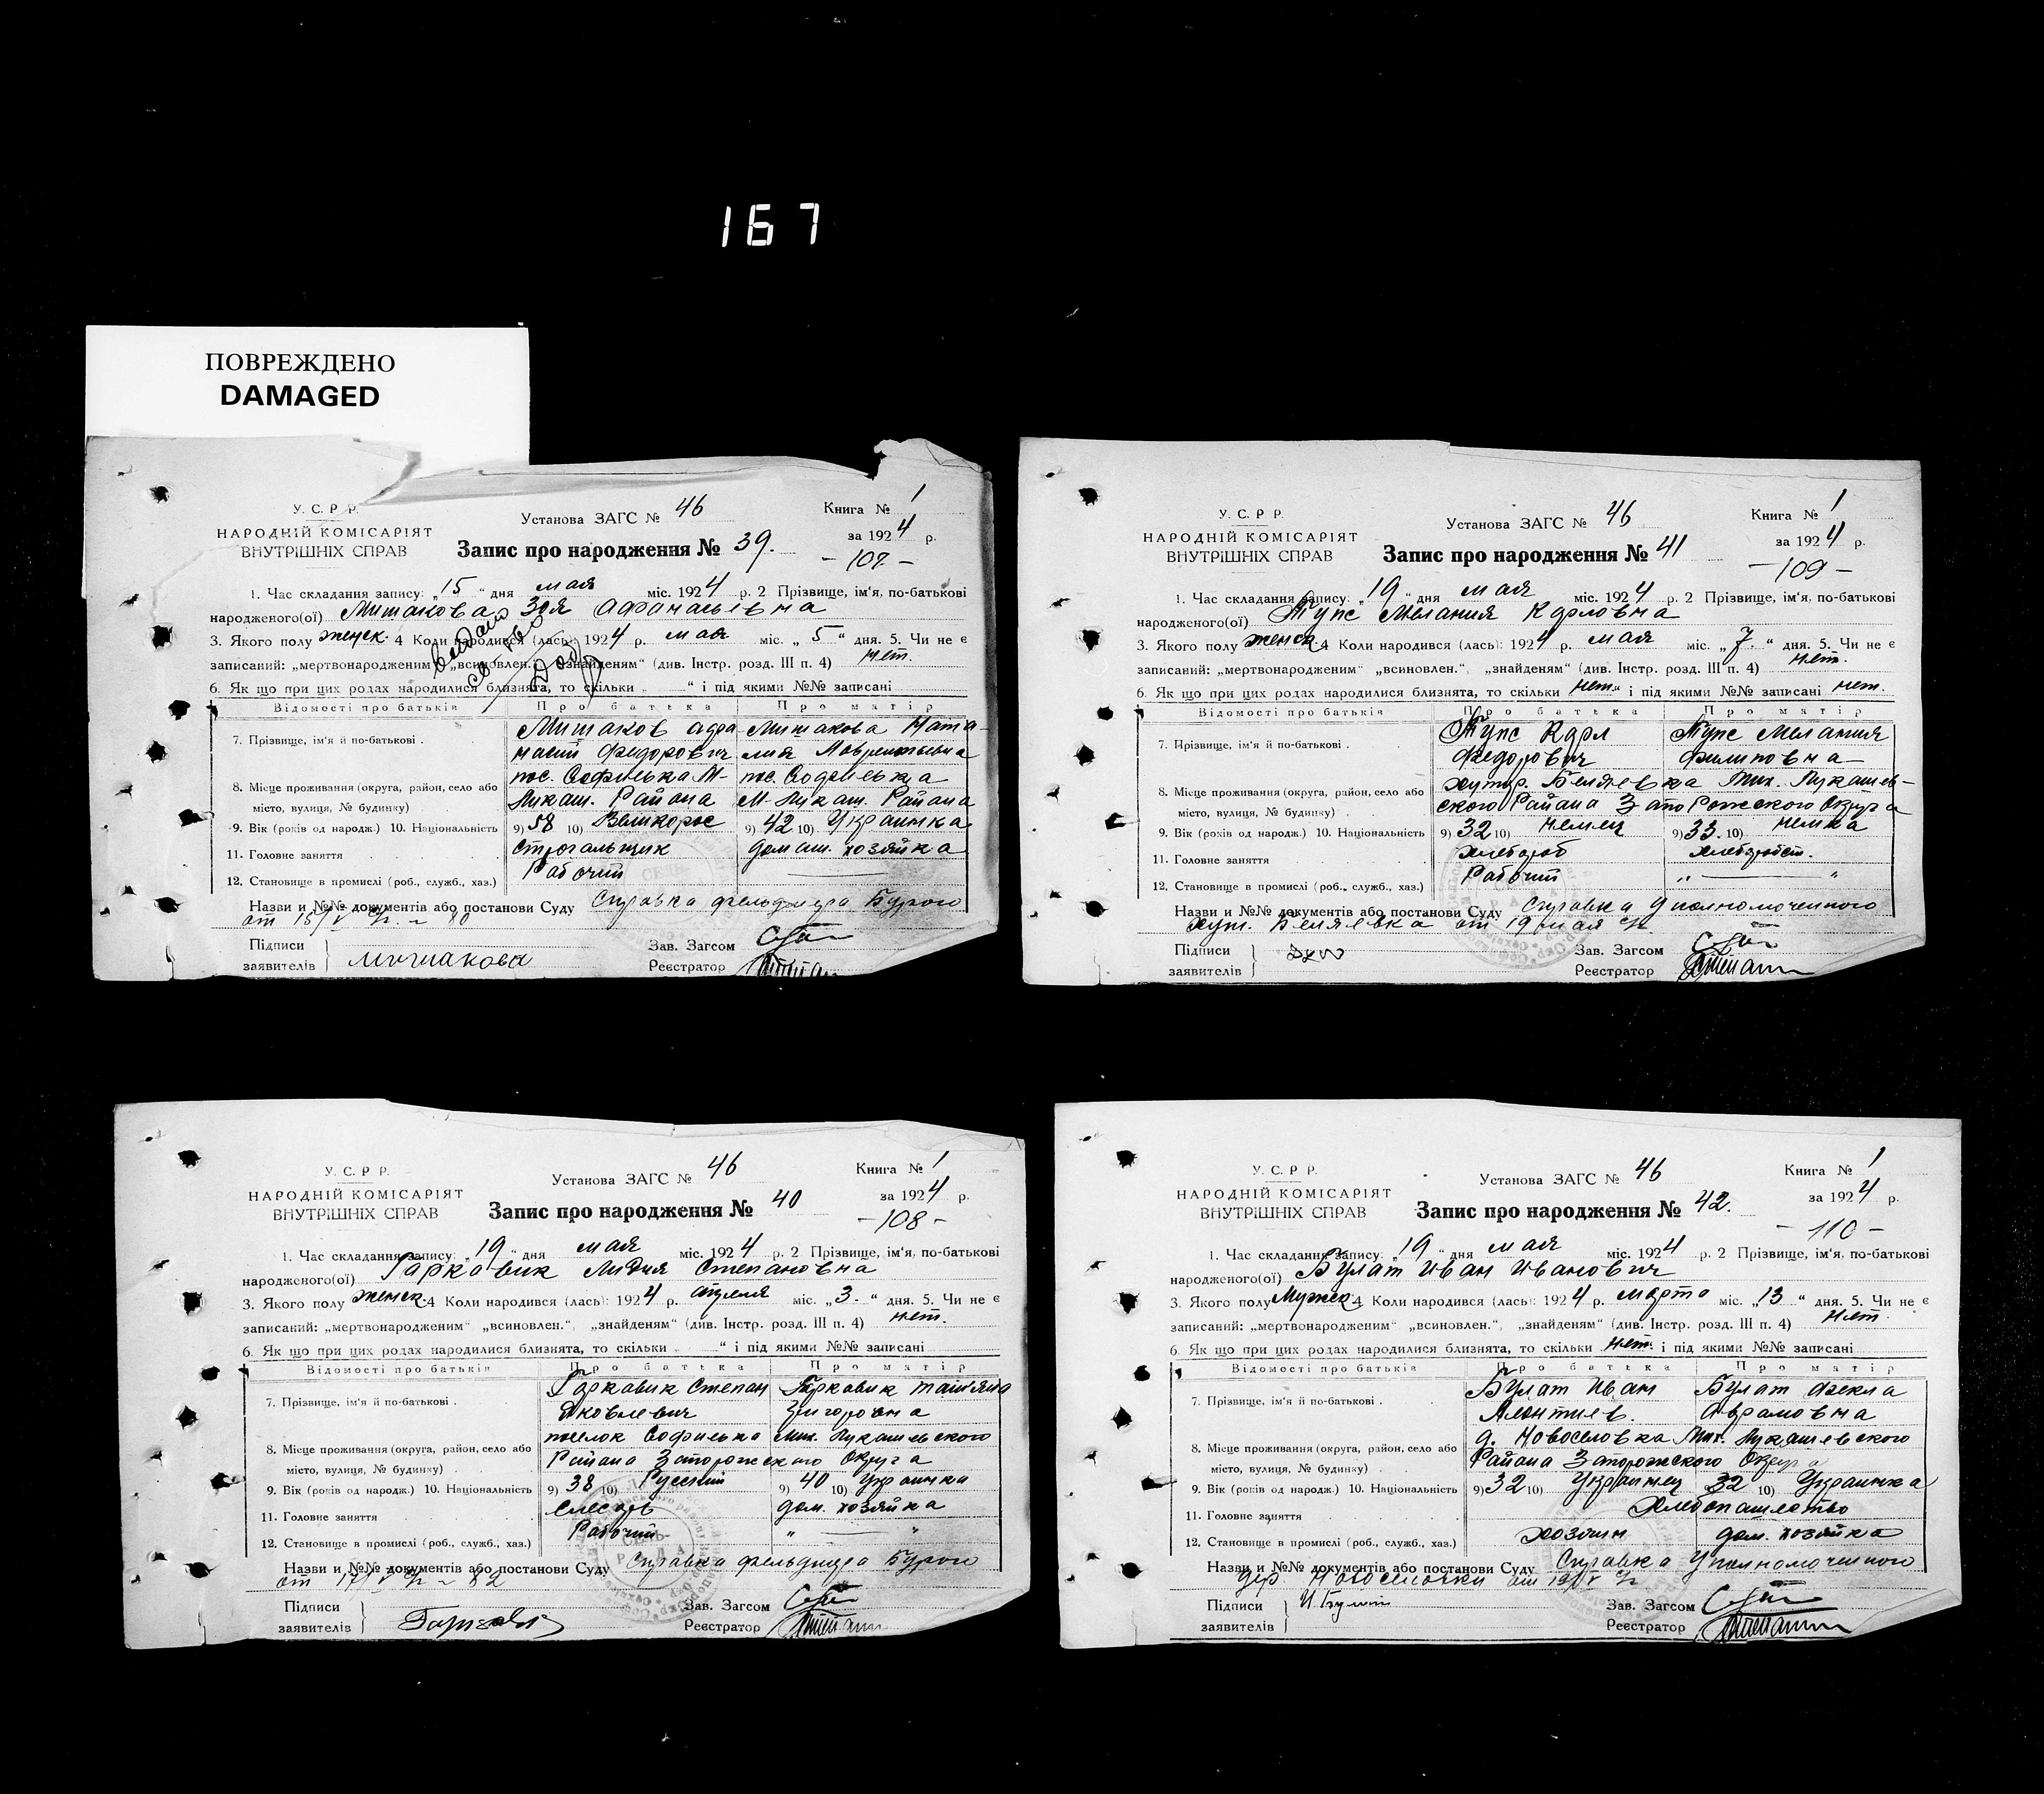 167
ПОВРЕЖДЕНО
DAMAGED
У. С. Р. Р.
НАРОДНІЙ КОМІСАРІЯТ
ВНУТРІШНІХ СПРАВ
Установа ЗАГС № 46
Книга № 1
за 1924 р.
Запис про народження № 39.
- 107 -
1. Час складання запису: „15“ дня мая міс. 1924 р. 2 Прізвище, ім'я, по-батькові
народженого(ої) Мишакова Зоя Афанасьевна
3. Якого полу женск. 4 Коли народився (лась): 1924 р. мая міс. „5“ дня. 5. Чи не є
записаний: „мертвонародженим“ „всиновлен.“, „знайденям“ (див. Інстр. розд. III п. 4) нет.
6. Як що при цих родах народилися близнята, то скільки “ і під якими №№ записані
Відомості про батьків Про батька Про матір
7. Прізвище, ім'я й по-батькові . Мишаков Афа Мишакова Ната-
насий Федорович лия Лаврентьевна
8. Місце проживання (округа, район, село або пос. Софиевка М- пос. Софиевка
місто, вулиця, № будинку) Лукаш. Района М-Лукаш. Района
9. Вік (років од народж.) 10. Національність 9) 58 10) Великорос 9) 42 10) Украинка
11. Головне заняття строгальщик домаш. хозяйка
12. Становище в промислі (роб., служб., хаз.) Рабочий
Назви и №№ документів або постанови Суду Справка фельдшера Бурого
от 15/V с/г. № 80
Підписи
заявителів Мишакова
Зав. Загсом
Реєстратор
У. С. Р. Р.
НАРОДНІЙ КОМІСАРІЯТ
ВНУТРІШНІХ СПРАВ
Установа ЗАГС № 46
Книга № 1
за 1924 р.
Запис про народження № 41
- 109 -
1. Час складання запису: „19“ дня мая міс. 1924 р. 2 Прізвище, ім'я, по-батькові
народженого(ої) Тупс Мелания Карловна
3. Якого полу женск 4 Коли народився (лась): 1924 р. мая міс. „7.“ дня. 5. Чи не є
записаний: „мертвонародженим“ „всиновлен.“, „знайденям“ (див. Інстр. розд. III п. 4) нет.
6. Як що при цих родах народилися близнята, то скільки нет“ і під якими №№ записані нет.
Відомості про батьків Про батька Про матір
7. Прізвище, ім'я й по-батькові . Тупс Карл Тупс Мелания
Федорович Филиповна
8. Місце проживання (округа, район, село або хутор. Беляевка Мих. Лукашев-
місто, вулиця, № будинку) ского Района Запорожского Округа
9. Вік (років од народж.) 10. Національність 9) 32 10) немец 9) 33. 10) немка
11. Головне заняття хлебороб хлеборобст.
12. Становище в промислі (роб., служб., хаз.) Рабочий „ — “
Назви и №№ документів або постанови Суду Справка Уполномоченного
хут. Беляевка от 19 мая с/г
Підписи
заявителів
Зав. Загсом
Реєстратор
У. С. Р. Р.
НАРОДНІЙ КОМІСАРІЯТ
ВНУТРІШНІХ СПРАВ
Установа ЗАГС № 46
Книга № 1
за 1924 р.
Запис про народження № 40
- 108 -
1. Час складання запису: „19“ дня мая міс. 1924 р. 2 Прізвище, ім'я, по-батькові
народженого(ої) Гаркавик Лидия Степановна
3. Якого полу женск. 4 Коли народився (лась): 1924 р. апреля міс. „3.“ дня. 5. Чи не є
записаний: „мертвонародженим“ „всиновлен.“, „знайденям“ (див. Інстр. розд. III п. 4) нет.
6. Як що при цих родах народилися близнята, то скільки “ і під якими №№ записані
Відомості про батьків Про батька Про матір
7. Прізвище, ім'я й по-батькові . Гаркавик Степан Гаркавик Татьяна
Яковлевич Григоровна
8. Місце проживання (округа, район, село або поселок Софиевка Мих. Лукашевского
місто, вулиця, № будинку) Района Запорожского Округа
9. Вік (років од народж.) 10. Національність 9) 38 10) Русский 9) 40 10) Украинка
11. Головне заняття Слесарь дом. хозяйка
12. Становище в промислі (роб., служб., хаз.) Рабочий „ — “
Назви и №№ документів або постанови Суду Справка фельдшера Бурого
от 17/V с/г № 82
Підписи
заявителів
Зав. Загсом
Реєстратор
У. С. Р. Р.
НАРОДНІЙ КОМІСАРІЯТ
ВНУТРІШНІХ СПРАВ
Установа ЗАГС № 46
Книга № 1
за 1924 р.
Запис про народження № 42.
- 110 -
1. Час складання запису: „19“ дня мая міс. 1924 р. 2 Прізвище, ім'я, по-батькові
народженого(ої) Булат Иван Иванович
3. Якого полу Мужск 4 Коли народився (лась): 1924 р. марта міс. „13“ дня. 5. Чи не є
записаний: „мертвонародженим“ „всиновлен.“, „знайденям“ (див. Інстр. розд. III п. 4) Нет.
6. Як що при цих родах народилися близнята, то скільки нет. і під якими №№ записані
Відомості про батьків Про батька Про матір
7. Прізвище, ім'я й по-батькові . Булат Иван Булат Фекла
Леонтиев. Аврамовна
8. Місце проживання (округа, район, село або д. Новоселовка Мих. Лукашевского
місто, вулиця, № будинку) Района Запорожского Округа
9. Вік (років од народж.) 10. Національність 9) 32 10) Украинец 32 10) Украинка
11. Головне заняття Хлебопашество
12. Становище в промислі (роб., служб., хаз.) хозяин дом. хозяйка
Назви и №№ документів або постанови Суду Справка Уполномоченного
дер Новоселовки от 19/V с/г
Підписи
заявителів И Булат
Зав. Загсом
Реєстратор